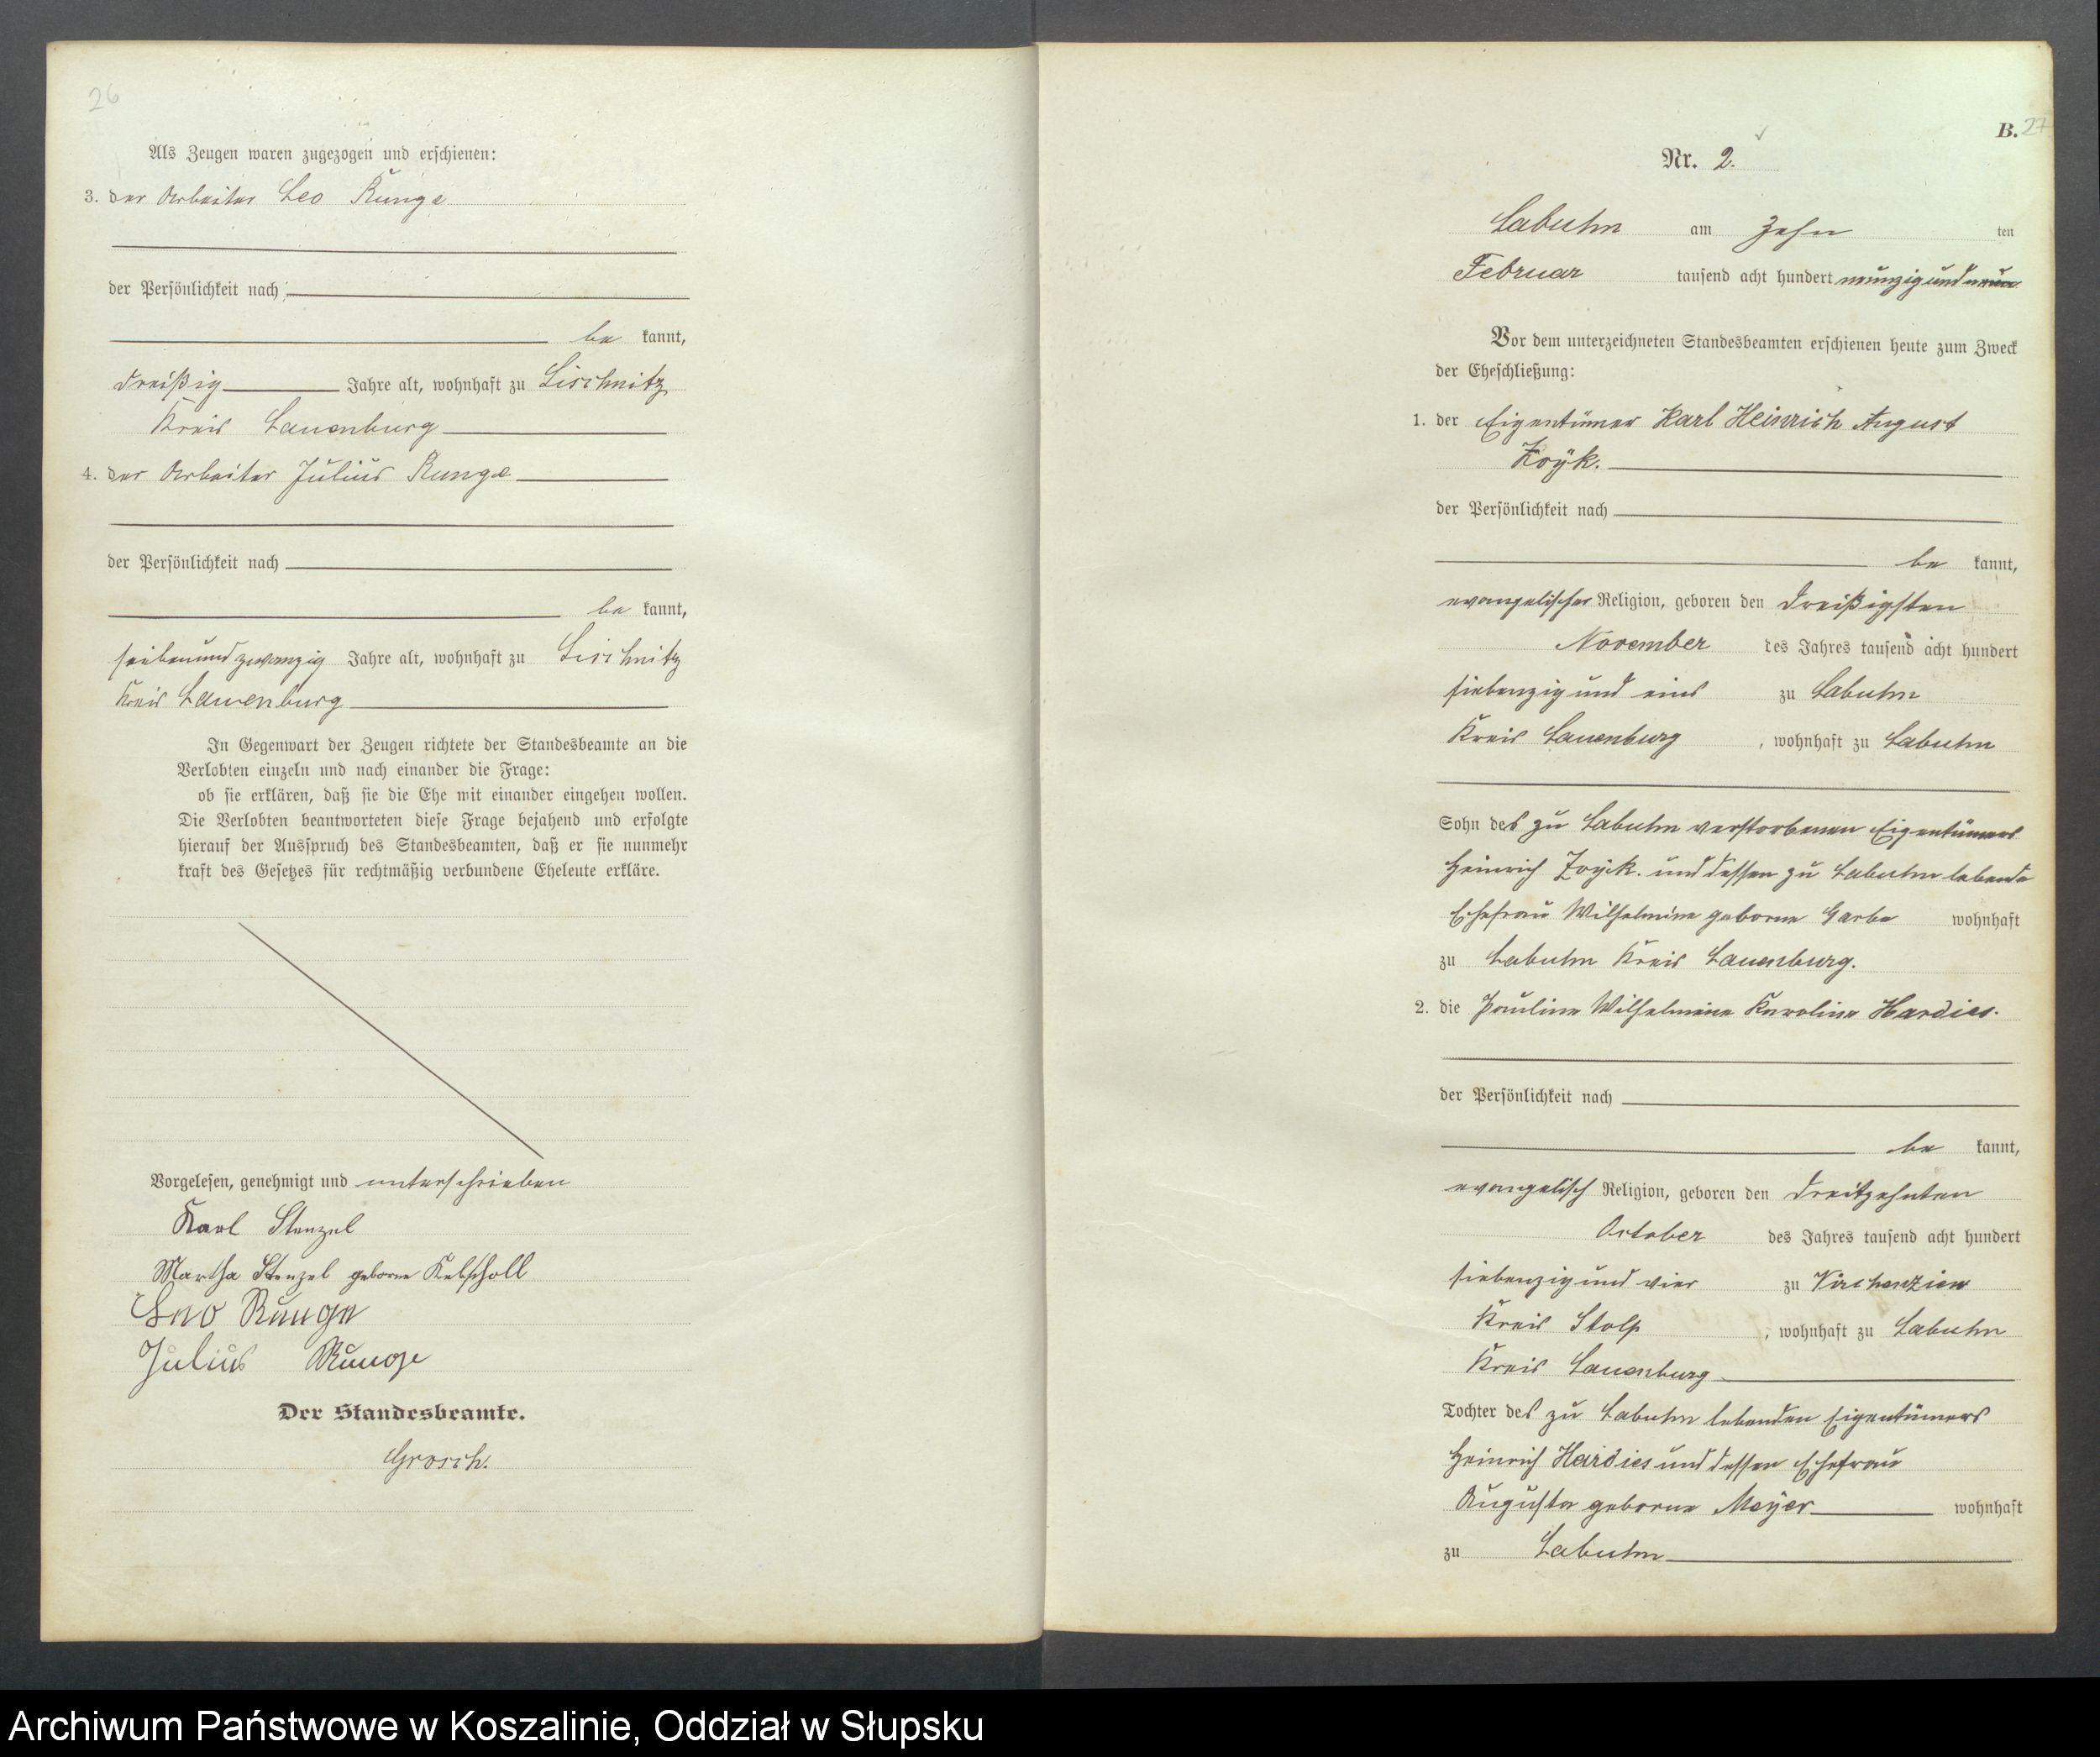 26
Als Zeugen waren zugezogen und erschienen:
3. der Arbeiter Leo Runge
der Persönlichkeit nach
be kannt,
dreißig Jahre alt, wohnhaft zu Lischnitz
Kreis Lauenburg
4. der Arbeiter Julius Runge
der Persönlichkeit nach
be kannt,
siebenundzwanzig Jahre alt, wohnhaft zu Lischnitz
Kreis Lauenburg
In Gegenwart der Zeugen richtete der Standesbeamte an die
Verlobten einzeln und nach einander die Frage:
ob sie erklären, daß sie die Ehe mit einander eingehen wollen.
Die Verlobten beantworteten diese Frage bejahend und erfolgte
hierauf der Ausspruch des Standesbeamten, daß er sie nunmehr
kraft des Gesetzes für rechtmäßig verbundene Eheleute erkläre.
Vorgelesen, genehmigt und unterschrieben
Karl Stenzel
Martha Stenzel geborne
Leo Runge
Julius Runge
Der Standesbeamte.
Grosch.
B. 27
Nr. 2.
Labuhn am zehn ten
Februar tausend acht hundert neunzig und neun
Vor dem unterzeichneten Standesbeamten erschienen heute zum Zweck
der Eheschließung:
1. der Eigentümer Karl Heinrich August
Zoÿk.
der Persönlichkeit nach
be kannt,
evangelischer Religion, geboren den dreißigsten
November des Jahres tausend acht hundert
siebenzig und eins zu Labuhn
Kreis Lauenburg, wohnhaft zu Labuhn
Sohn des zu Labuhn verstorbenen Eigentümers
Heinrich Zoÿk. und dessen zu Labuhn lebende
Ehefrau Wilhelmine geborne Garbe wohnhaft
zu Labuhn Kreis Lauenburg.
2. die Pauline Wilhelmine Karoline Hardies.
der Persönlichkeit nach
be kannt,
evangelisch Religion, geboren den dreitzehnten
October des Jahres tausend acht hundert
siebenzig und vier zu Virchenzien
Kreis Stolp, wohnhaft zu Labuhn
Kreis Lauenburg
Tochter des zu Labuhn lebenden Eigentümers
Heinrich Hardies und dessen Ehefrau
Auguste geborne Meÿer wohnhaft
zu Labuhn
Archiwum Państwowe w Koszalinie, Oddział w Słupsku